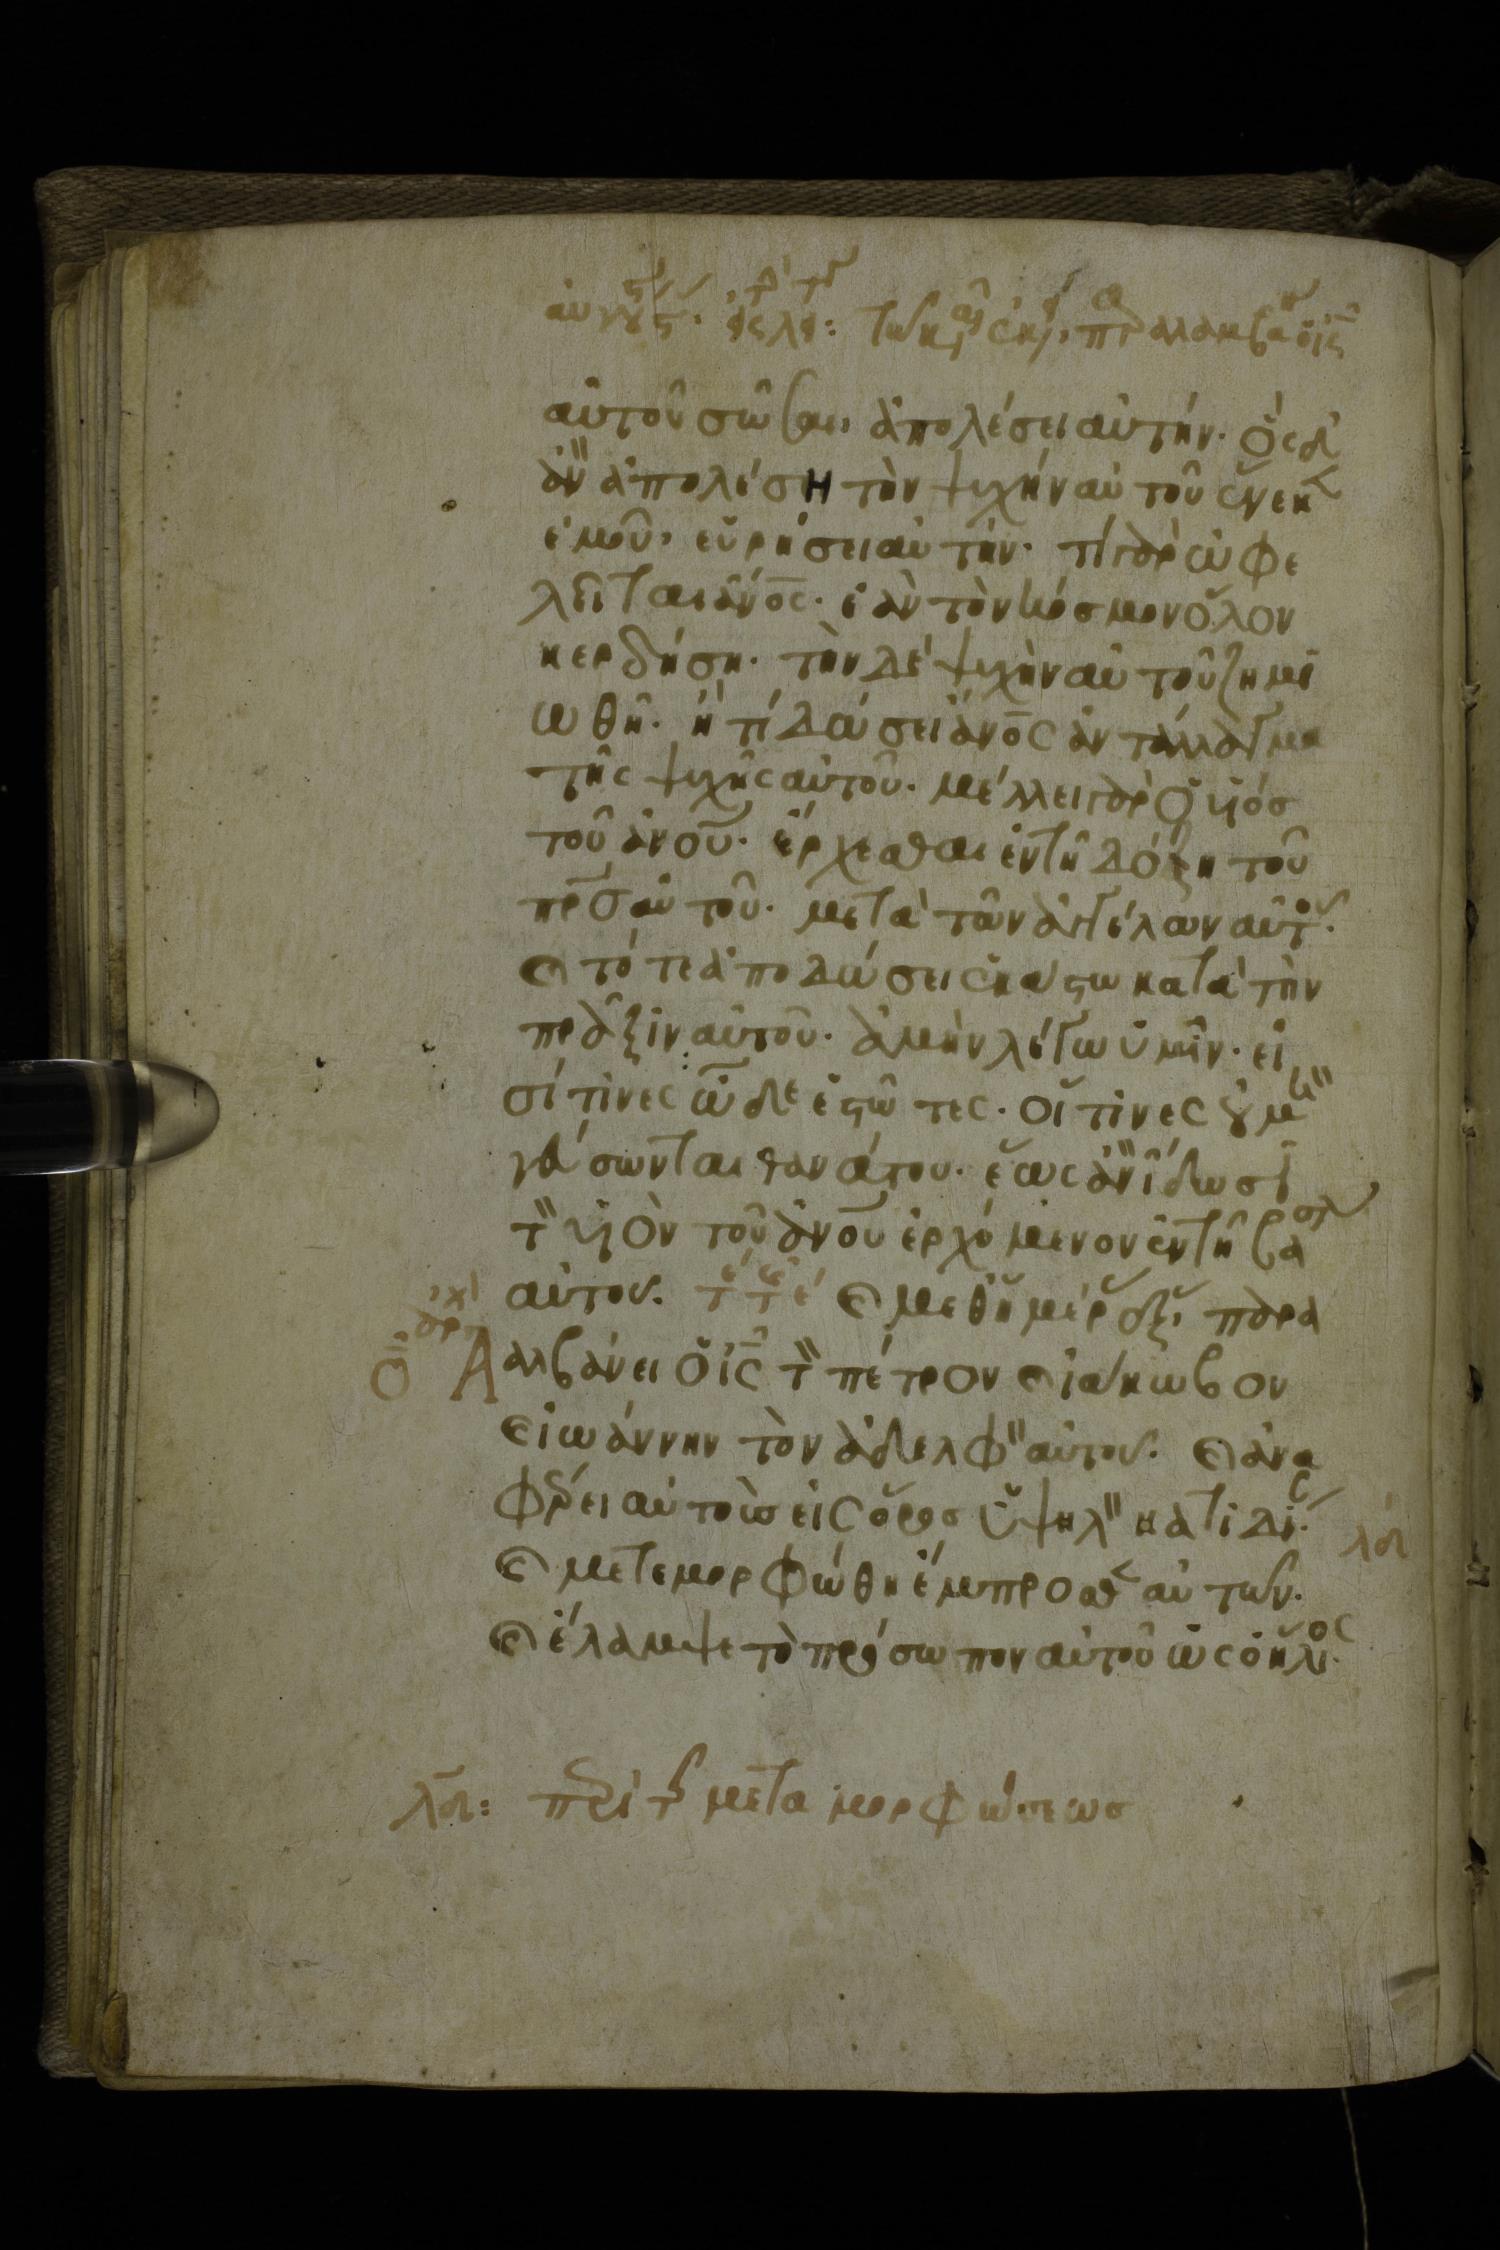 αὐτοῦ σῶσαι, ἀπολέσει αὐτήν· ὃς δ
ἂν ἀπολέσῃ τὴν ψυχὴν αὐτοῦ ἕνεκ
ἐμοῦ, εὑρήσει αὐτήν· τί γὰρ ὠφε
λεῖται ἄνος· ἐὰν τὸν κόσμον ὅλον
κερδήση· τὴν δὲ ψυχὴν αὐτοῦ ζημι
ωθῆ· ἢ τί δώσει ἄνος ἀντάλλαγμα
τῆς ψυχῆς αὐτοῦ· μέλλει γὰρ ὁ υἱὸσ
τοῦ ἀνου· ἔρχεσθαι ἐν τῆ δόξη τοῦ
πρσ αὐτοῦ· μετὰ τῶν ἀγγέλων αὐτ·
ϗ τότε ἀποδώσει ἑκάστω κατὰ τὴν
πρᾶξιν αὐτοῦ· ἀμὴν λέγω ὑμῖν· εἰ
σί τινες ὧδε ἑστῶτες· οἵτινες οὐ μὴ
γεύσωνται θανάτου· ἕως ἂν ἴδωσι
τ υἱὸν τοῦ ἀνου ἐρχόμενον ἐν τῆ βασλ
αὐτου. τε ϗ μεθ ἡμέρ ἓξ, παρα
λαμβάνει ὁ ις τ πέτρον ϗ ἰάκωβον
ϗ ἰωάννην τὸν ἀδελφ αὐτου. ϗ ἀνα
φέρει αὐτοὺσ εἰς ὄροσ ὑψηλ κατιδί·
ϗ μετεμορφώθη ἔμπροσθ αὐτῶν·
ϗ ἔλαμψε τὸ πρόσωπον αὐτοῦ ὡς ὁ ἥλιος·
λδ: περὶ τ μεταμορφώσεωσ